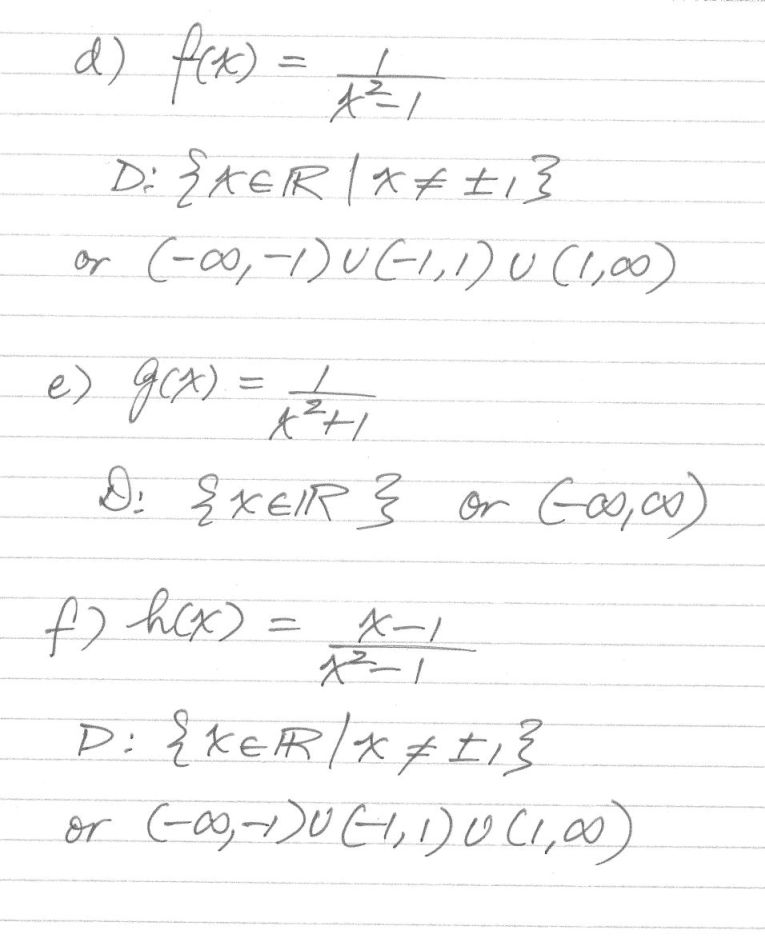 d) f(x) = 1/(x²-1)
D: {x∈ℝ | x ≠ ±1}
or (-∞,-1)∪(-1,1)∪(1,∞)
e) g(x) = 1/(x²+1)
D: {x∈ℝ} or (-∞,∞)
f) h(x) = (x-1)/(x²-1)
D: {x∈ℝ | x ≠ ±1}
or (-∞,-1)∪(-1,1)∪(1,∞)